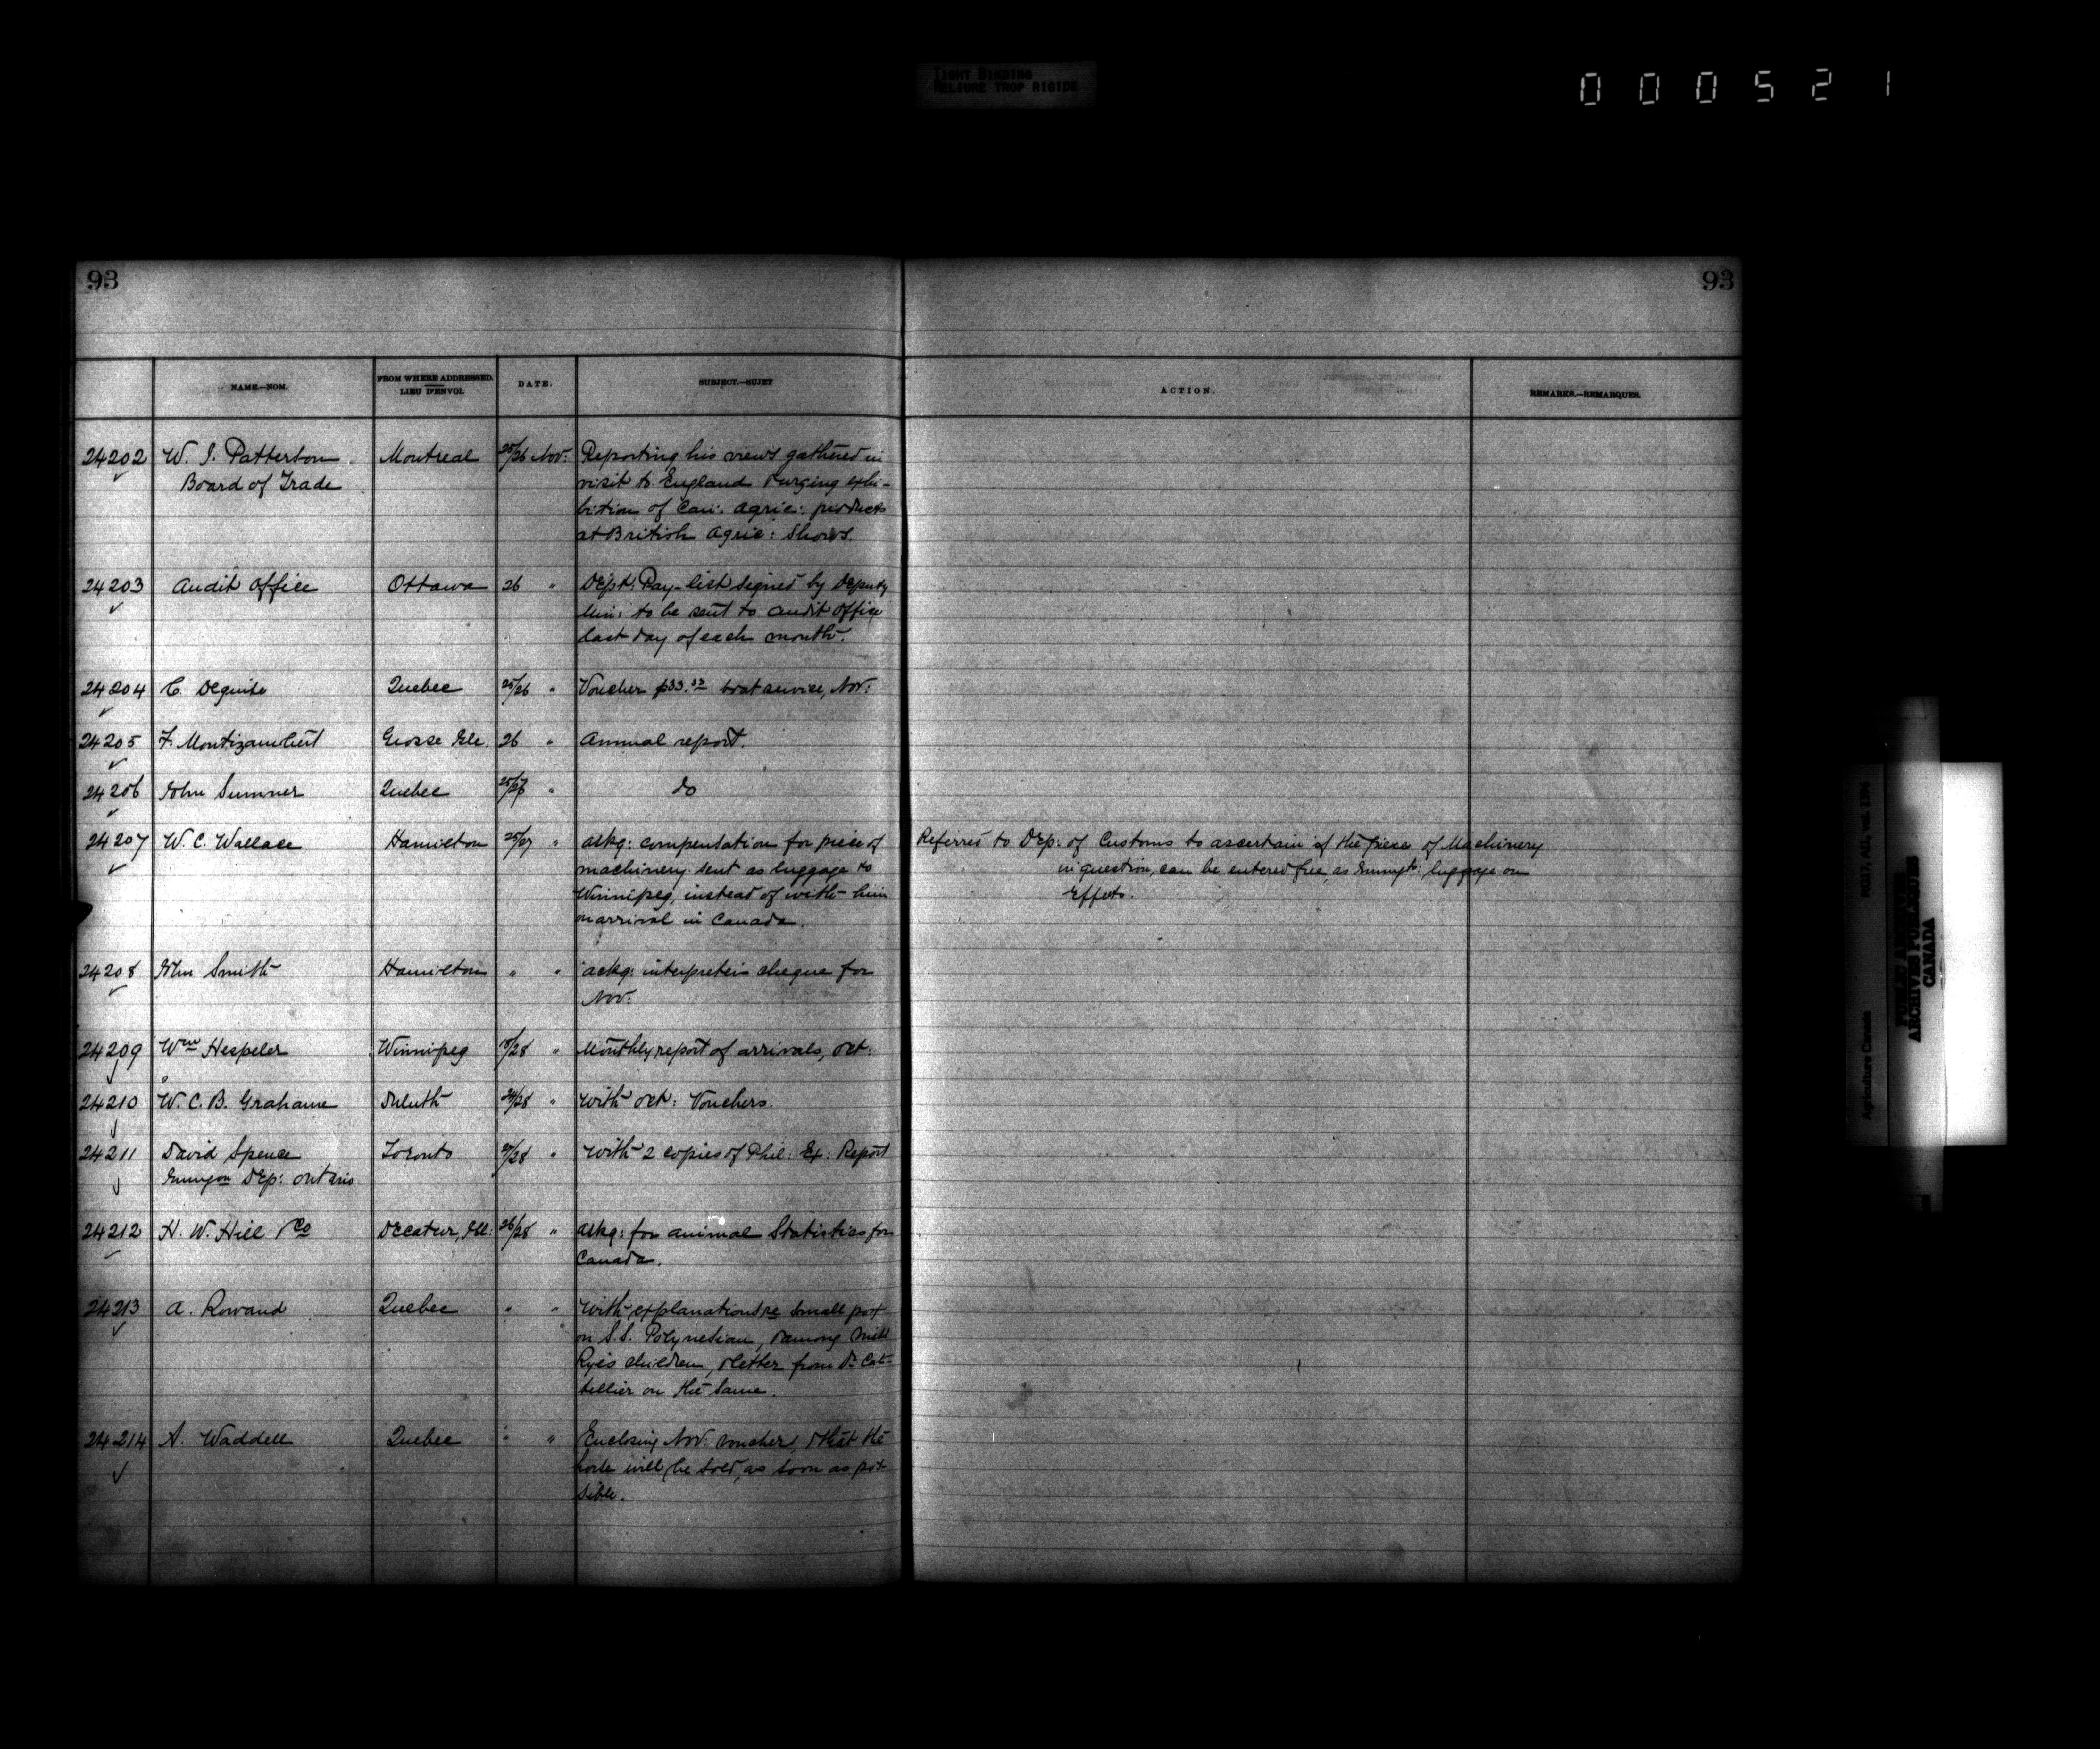 TIGHT BINDING
RELIURE TROP RIGIDE
000521
93
93
NAME.—NOM.
FROM WHERE ADDRESSED.
LIEU D'ENVOI.
DATE.
SUBJECT.—SUJET
ACTION.
REMARKS.—REMARQUES.
24202 W. J. Patterson Montreal 25/26 Nov: Reporting his views gathered in
Board of Trade visit to England & urging exhi-
bition of Can: Agric: products
at British Agric: Shows.
24203 Audit Office Ottawa 26 " Dept: Pay-list signed by Deputy
Min: to be sent to Audit Office
last day of each month.
24204 C. Deguise Quebec 25/26 " Voucher $33.33 boat service, Nov:
24205 F. Montizambert Grosse Isle. 26 " Annual report.
24206 John Sumner Quebec 25/27 " do
24207 W. C. Wallace Hamilton 25/27 " askg: compensation for piece of Referred to Dep: of Customs to ascertain if the piece of Machinery
machinery sent as luggage to in question, can be entered free, as Immigts: luggage or
Winnipeg, instead of with him Effects.
on arrival in Canada.
24208 John Smith Hamilton " " ackg: interpreters cheque for
Nov:
24209 Wm Hespeler Winnipeg 15/28 " Monthly report of arrivals, Oct:
24210 W. C. B. Grahame Duluth 24/28 " With Oct: Vouchers.
24211 David Spence Toronto 27/28 " With 2 copies of Phil: Ex: Report
Immigon Dep: Ontario
24212 H. W. Hill & Co Decatur, Ill: 26/28 " askg: for animal Statistics for
Canada.
24213 A. Rowand Quebec " " With explanations re small pox
on S.S. Polynesian, & among Miss
Rye's children, & letter from Dr Cat-
tellier on the same.
24214 A. Waddell Quebec " " Enclosing Nov: voucher, & that the
horse will be sold, as soon as pos
sible.
Agriculture Canada RG17, AII, vol. 1396
PUBLIC ARCHIVES
ARCHIVES PUBLIQUES
CANADA